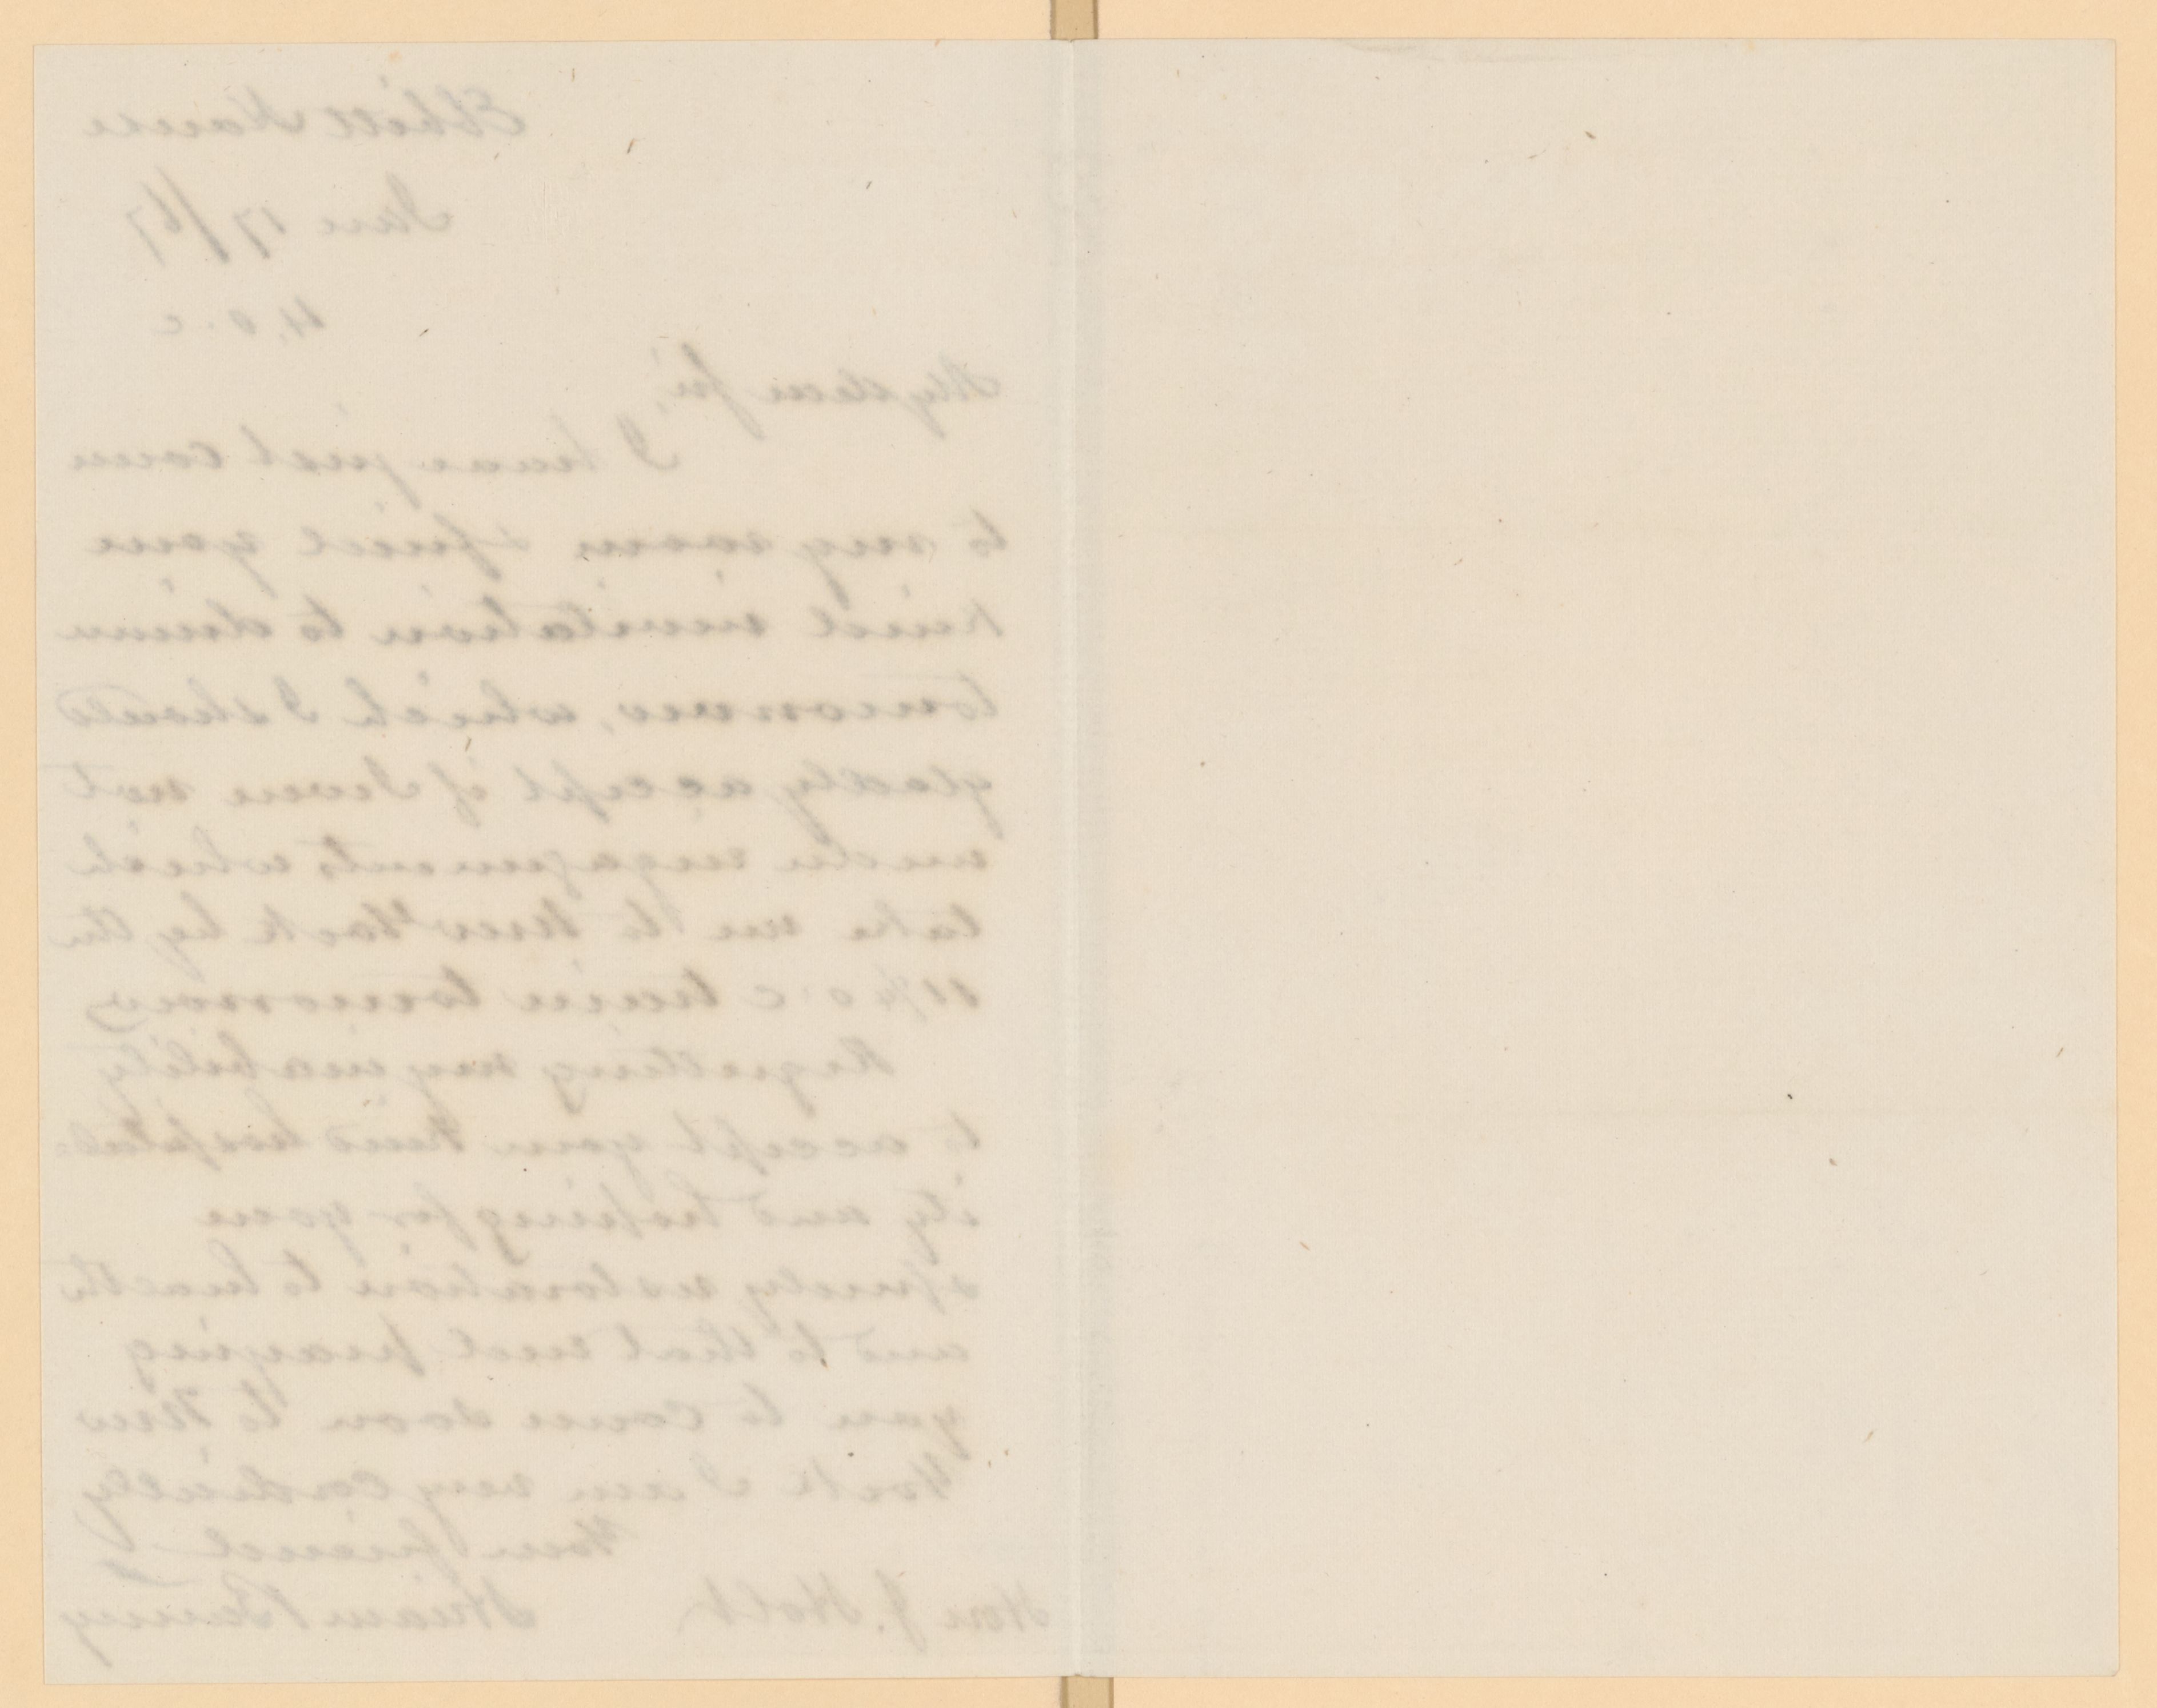 Ebbitt House
Jan 17/67
4 o.c
My dear Sir,
I have just come
to my room & find your
kind invitation to dinner
tomorrow, which I should
gladly accept if I were not
under engagements which
take me to New York by the
11¾ o.c train tomorrow
Regretting my inability
to accept your kind hospital-
ity and hoping for your
speedy restoration to health
and to that end praying
you to come soon to New
York I am very cordially
Your friend
Hon J. Holt Hiram Barney